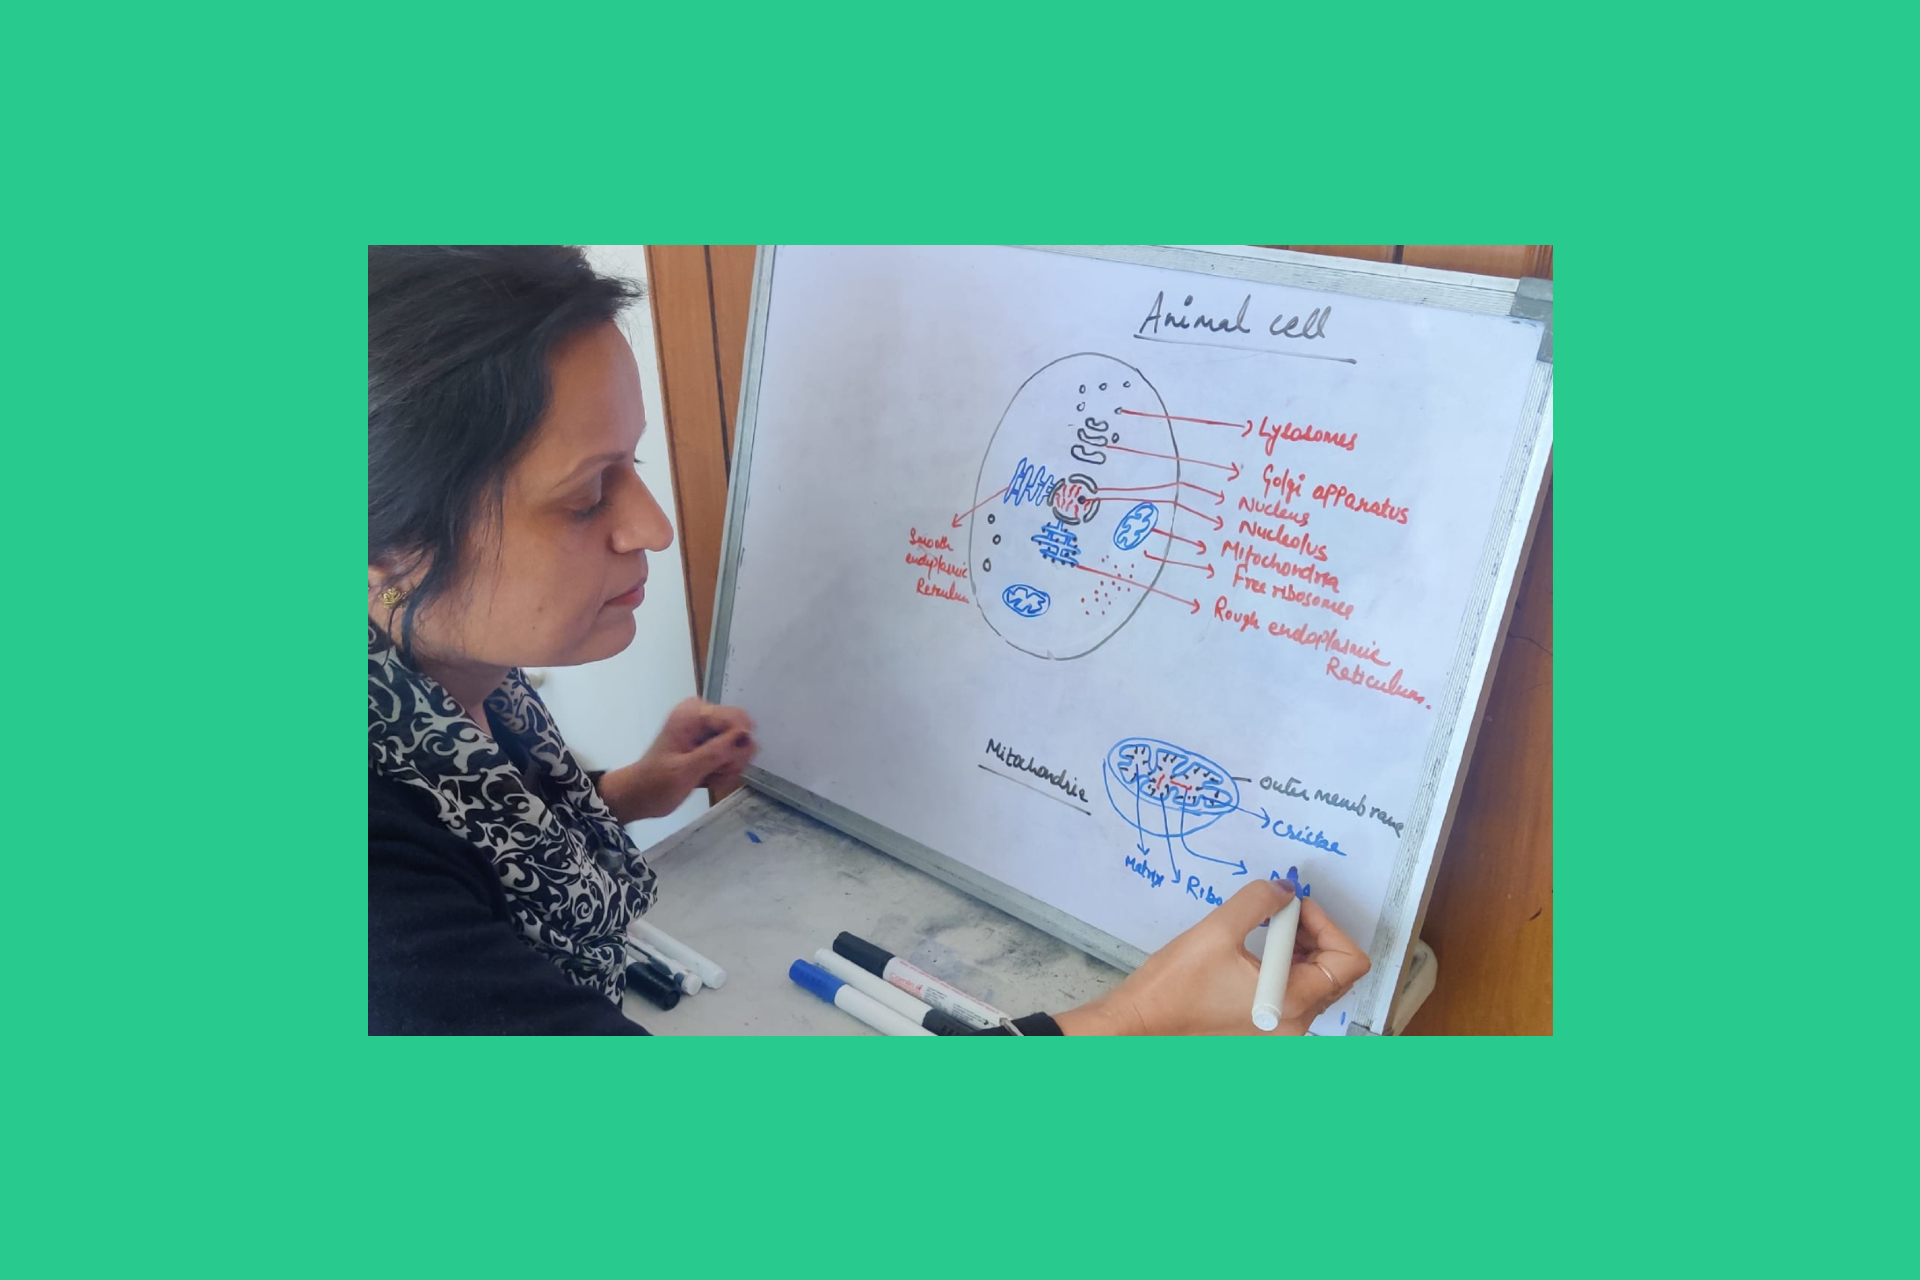 Animal cell
Lysosomes
Golgi apparatus
Nucleus
Nucleolus
Mitochondria
Free ribosomes
Rough endoplasmic
Reticulum.
Smooth
endoplasmic
Reticulum
Mitochondria
outer membrane
Cristae
Matrix
Ribo